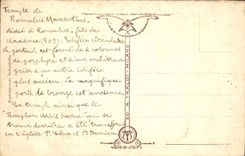 Temple de
Romulus Maxentius,
dédié à Romulus, fils de
Maxence (309). Edifice circulaire
le portail est formé de 2 colonnes
de porphyre et d'une architrave
prises à un autre édifice
plus ancien. La magnifique
porte de bronze est ancienne.
Ce temple ainsi que le
Templum Sacrae
trouve derrière a été transformé
en l'église St Côme et St Damien